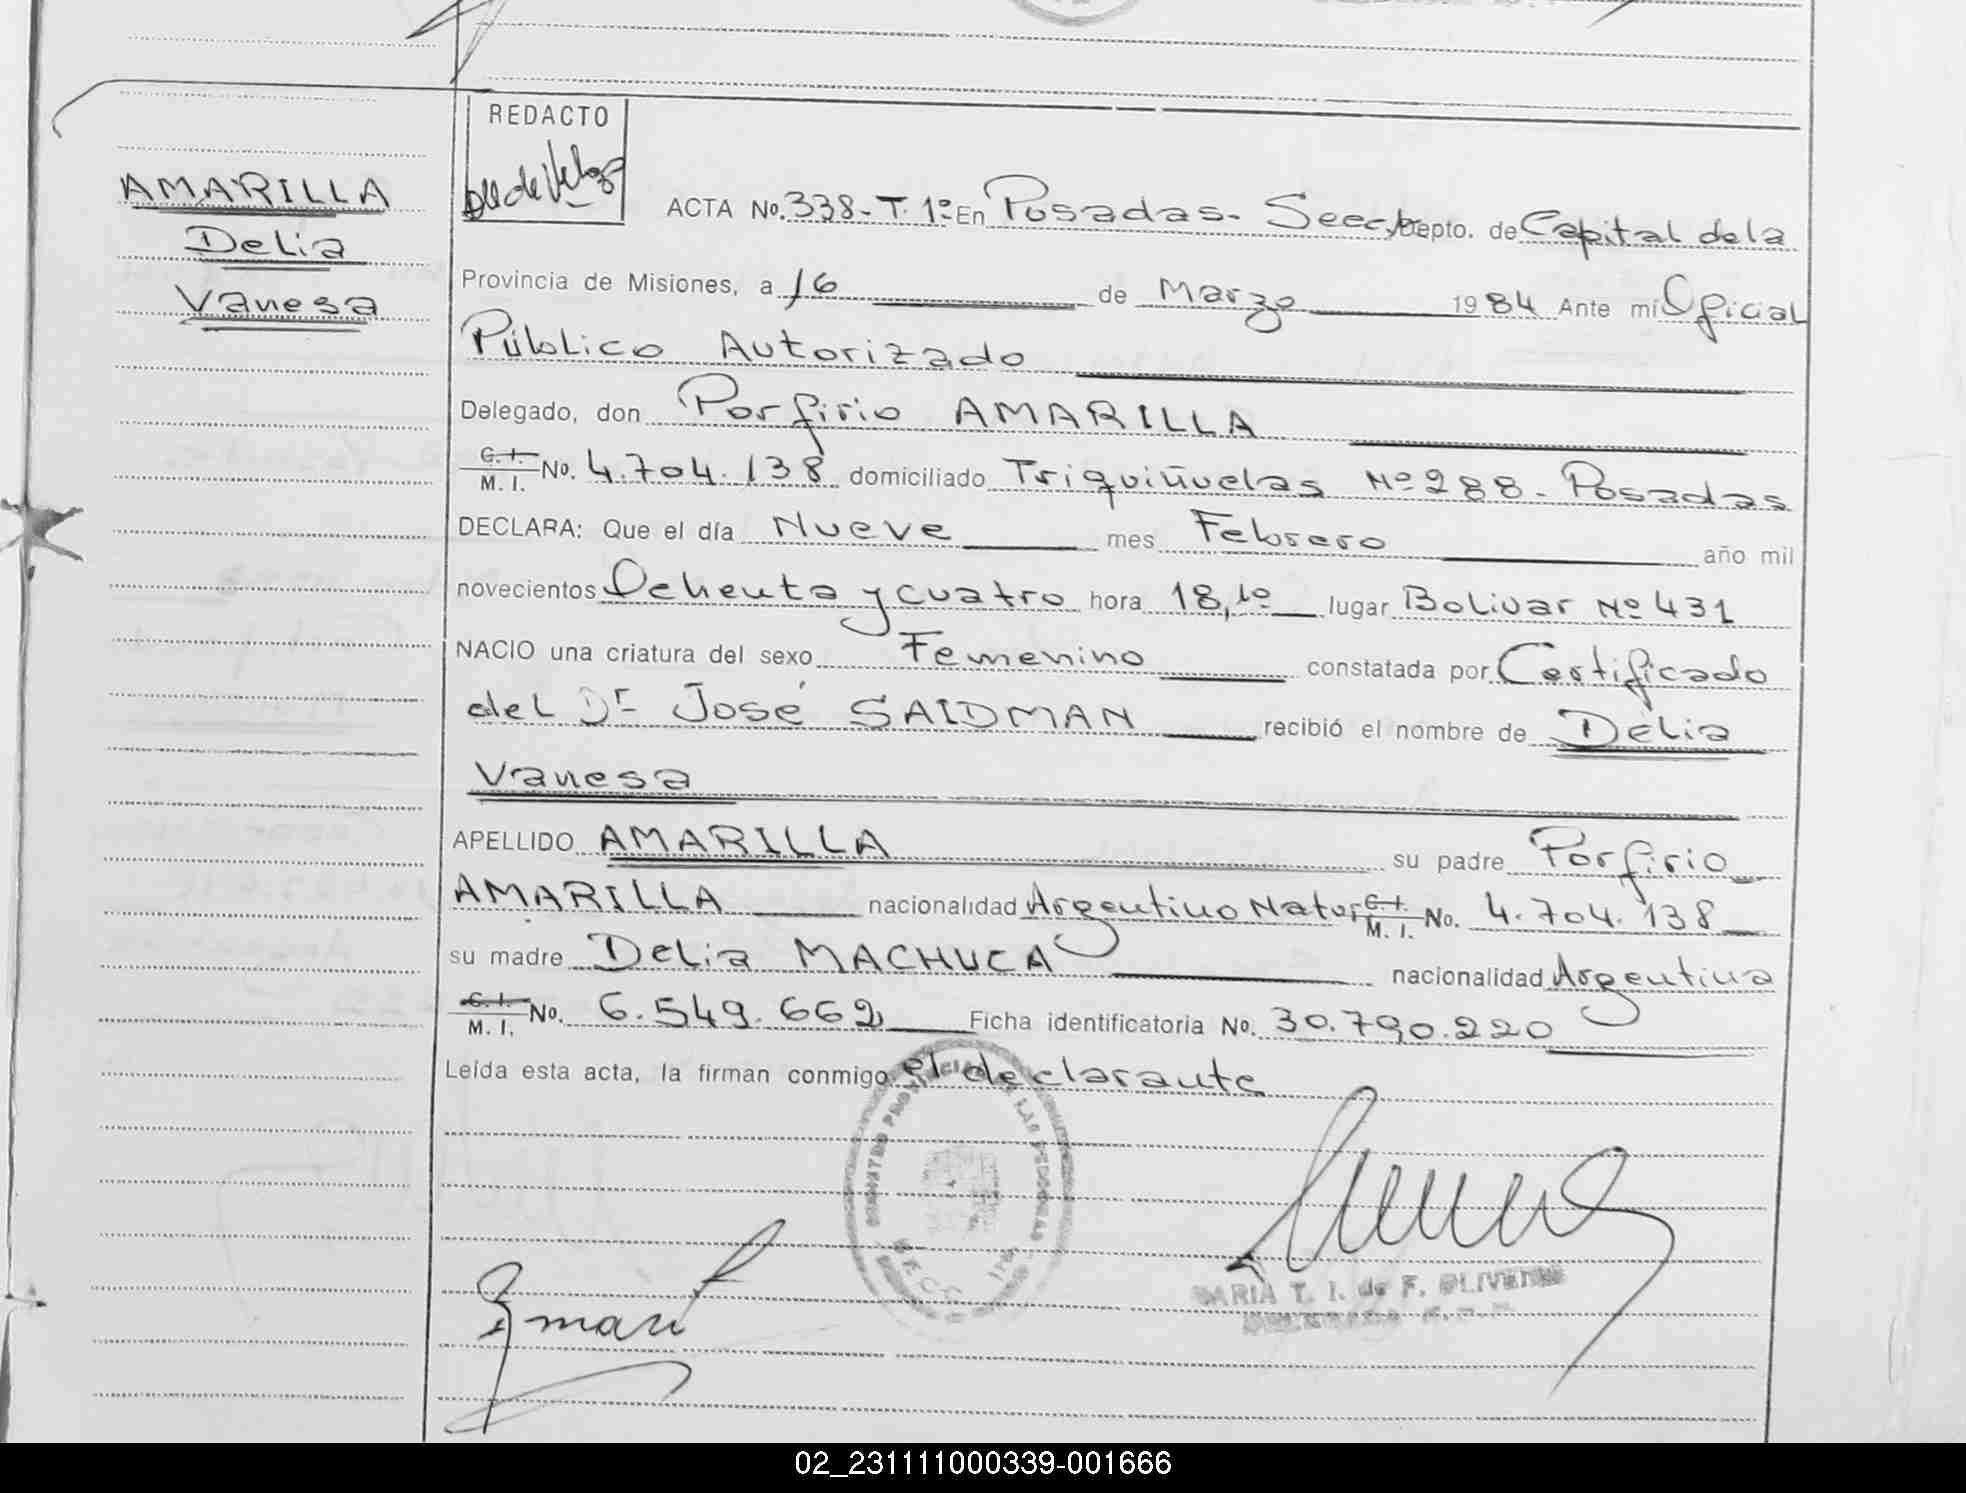 REDACTO
AMARILLA
Delia
Vanesa
ACTA No. 338-T. 1º En Posadas- Depto. de Capital de la
Provincia de Misiones, a 16 de Marzo 1984 Ante mi Oficial
Público Autorizado
Delegado, don Porfirio AMARILLA
C. I. M. I. No. 4.704.138 domiciliado Triquiñuelas Nº 288- Posadas
DECLARA: Que el día Nueve mes Febrero año mil
novecientos Ochenta y cuatro hora 18,10 lugar Bolivar Nº 431
NACIO una criatura del sexo Femenino constatada por Certificado
del Dr José SAIDMAN recibió el nombre de Delia
Vanesa
APELLIDO AMARILLA su padre Porfirio
AMARILLA nacionalidad Argentino Natur C. I. M. I. No. 4.704.138
su madre Delia MACHUCA nacionalidad Argentina
C. I. M. I. No. 6.549.662 Ficha identificatoria No. 30.790.220
Leída esta acta, la firman conmigo el declarante
T. I. de F. 
02_231111000339-001666